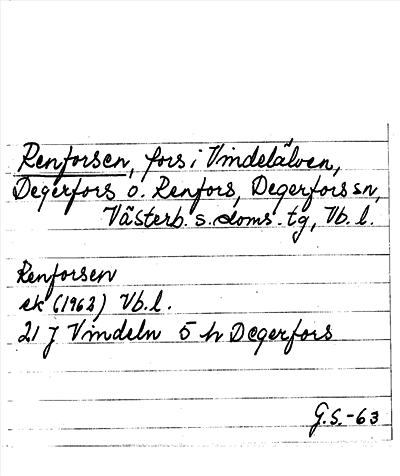 Renforsen, fors i Vindelälven,
Degerfors o. Renfors, Degerfors sn,
Västerb. s. doms. tg, Vb. l.
Renforsen
ek (1962) Vb. l.
21 J Vindeln 5 h Degerfors
G.S.-63